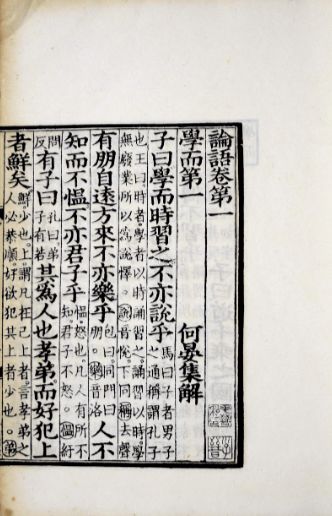 論語卷第一
學而第一 何晏集解
子曰學而時習之不亦說乎馬曰子者男子之通稱謂孔子
也王曰時者學者以時誦習之誦習以時學無廢業所以為說懌
有朋自遠方來不亦樂乎包曰同門曰朋 人不
知而不慍不亦君子乎慍怒也凡人有所不知君子不怒
有子曰孔曰弟子有若其為人也孝弟而好犯上
者鮮矣鮮少也上謂凡在己上者言孝弟之人必恭順好欲犯其上者少也